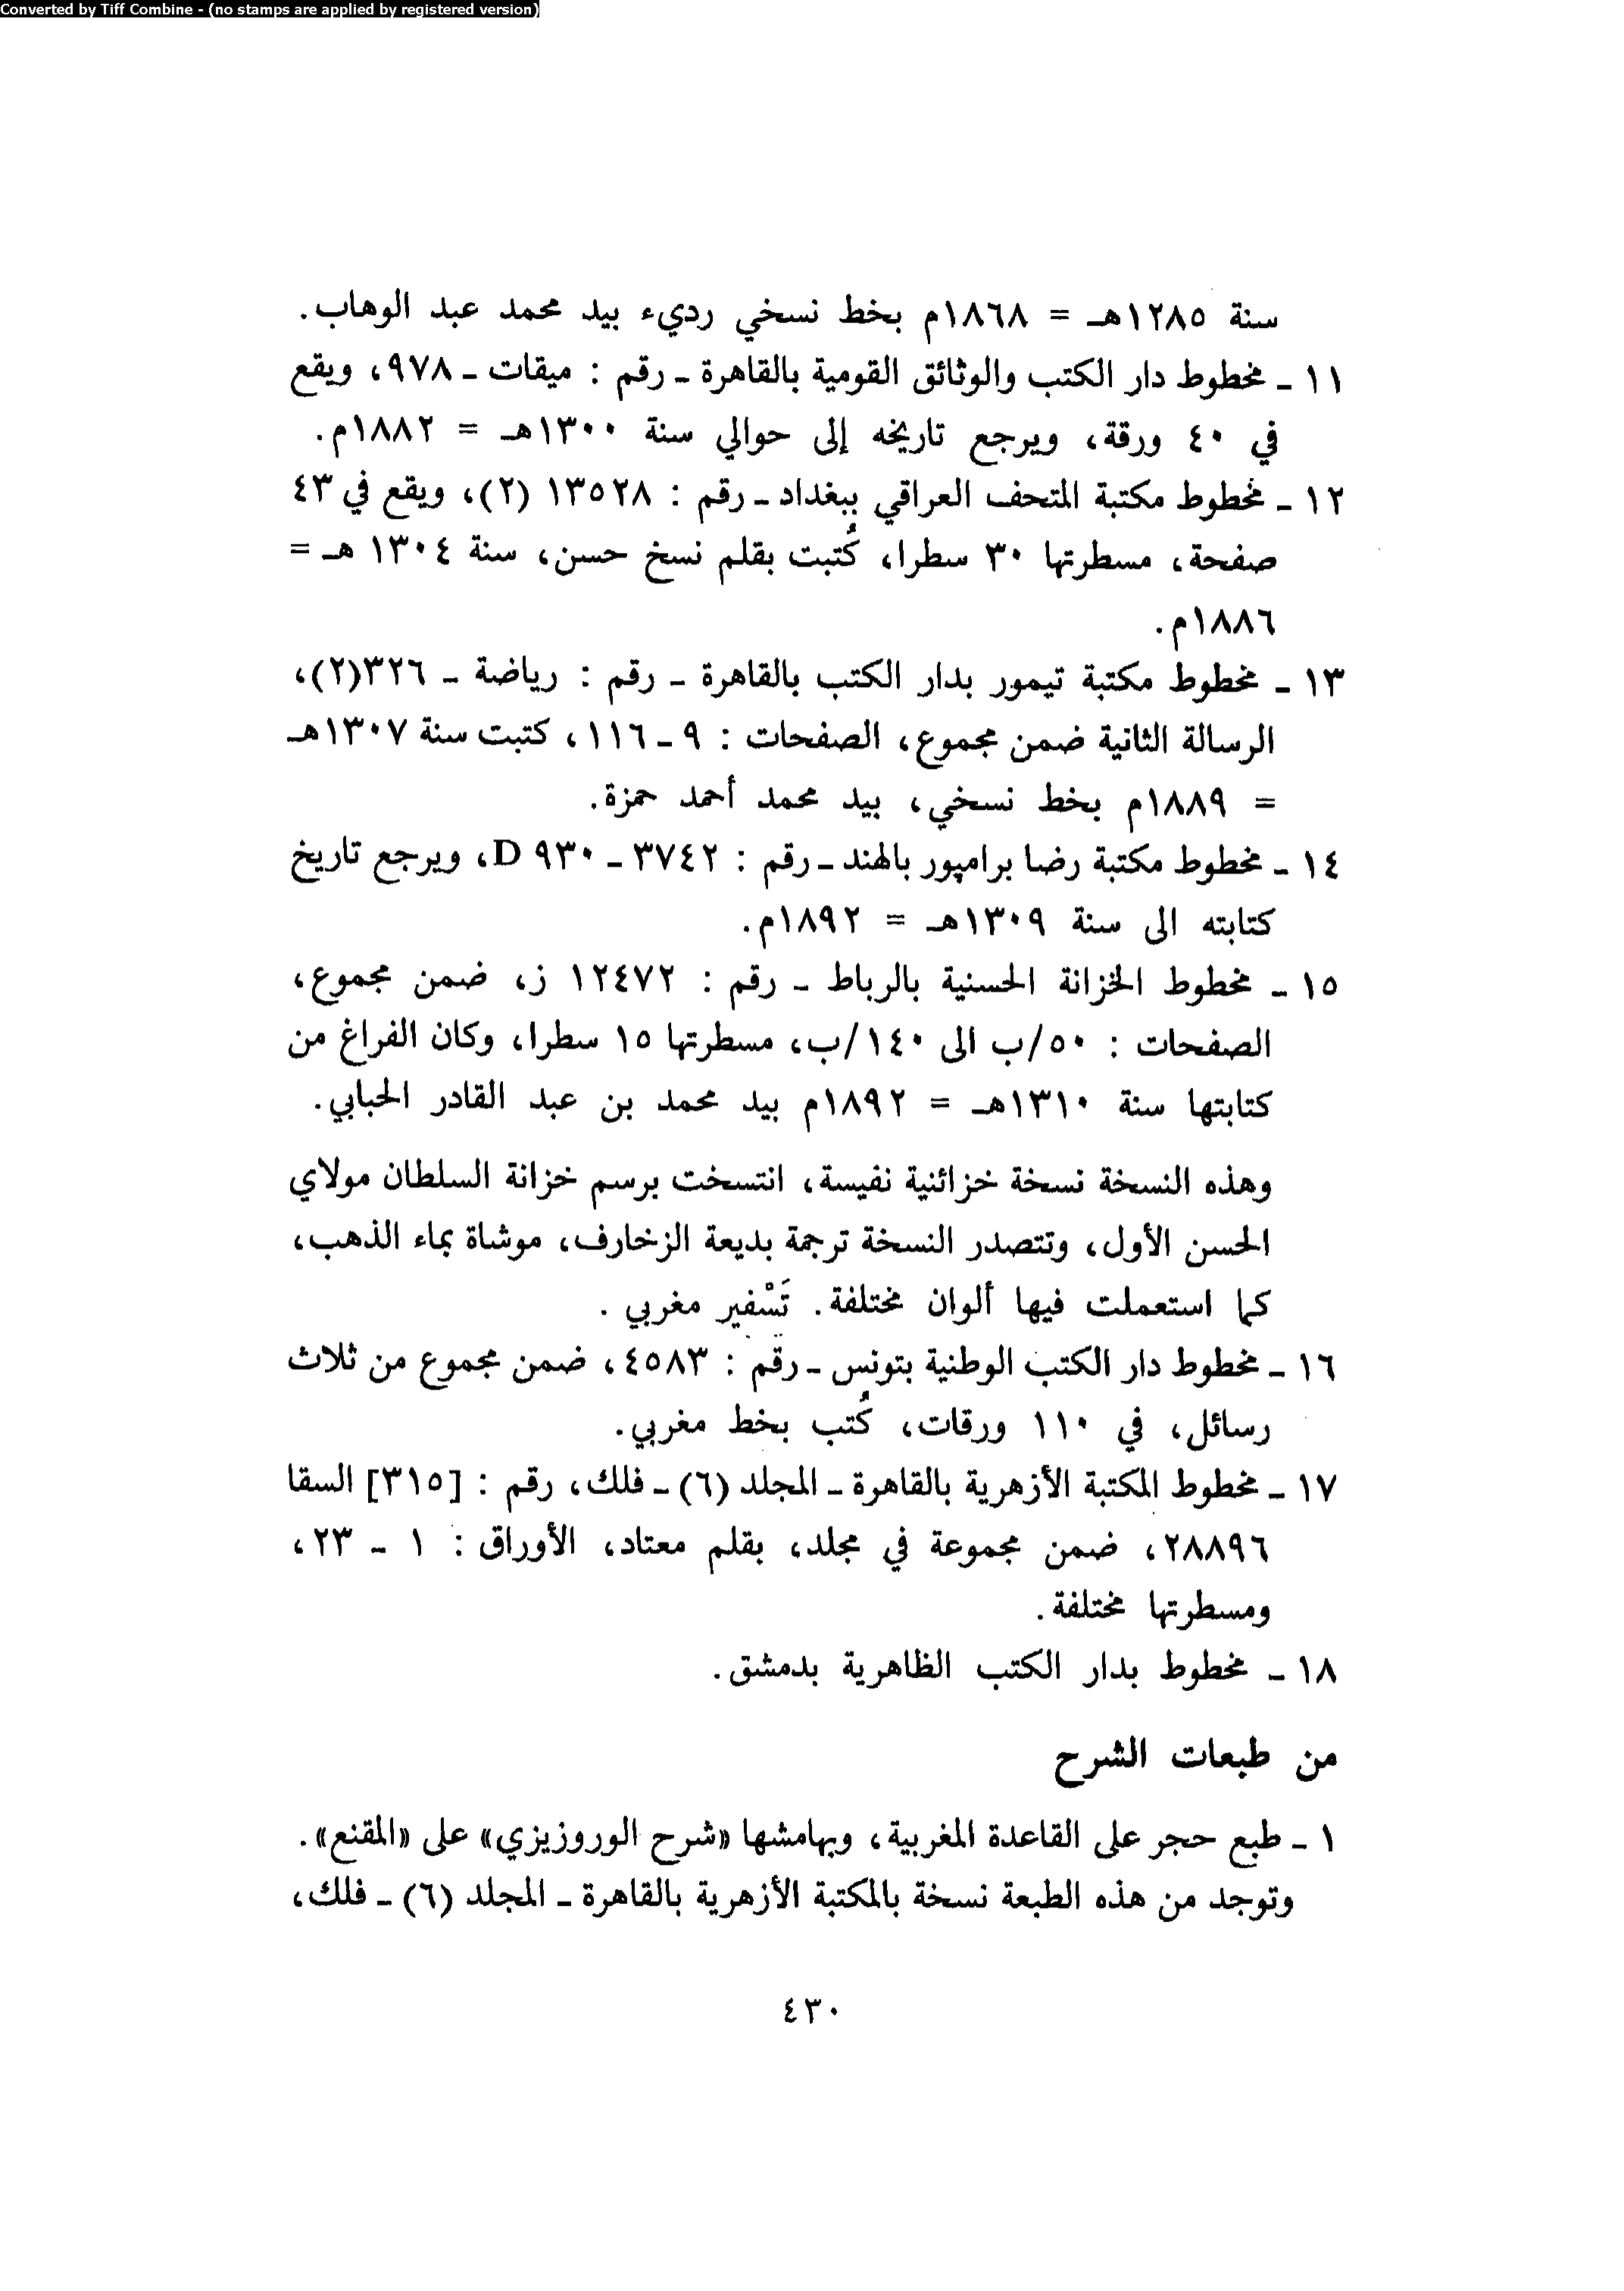 Converted by Tiff Combine - (no stamps are applied by registered version)
سنة ١٢٨٥هـ = ١٨٦٨م بخط نسخي رديء بيد محمد عبد الوهاب.
١١ ـ مخطوط دار الكتب والوثائق القومية بالقاهرة ـ رقم : ميقات ـ ٩٧٨، ويقع
في ٤٠ ورقة، ويرجع تاريخه إلى حوالي سنة ١٣٠٠هـ = ١٨٨٢م.
١٢ ـ مخطوط مكتبة المتحف العراقي ببغداد ـ رقم : ١٣٥٢٨ (٢)، ويقع في ٤٣
صفحة، مسطرتها ٣٠ سطرا، كُتبت بقلم نسخ حسن، سنة ١٣٠٤ هـ =
١٨٨٦م.
١٣ ـ مخطوط مكتبة تيمور بدار الكتب بالقاهرة ـ رقم : رياضة ـ ٣٢٦(٢)،
الرسالة الثانية ضمن مجموع، الصفحات : ٩ ـ ١١٦، كتبت سنة ١٣٠٧هـ
= ١٨٨٩م بخط نسخي، بيد محمد أحمد حمزة.
١٤ ـ مخطوط مكتبة رضا برامپور بالهند ـ رقم : ٣٧٤٢ ـ ٩٣٠ D، ويرجع تاريخ
كتابته الى سنة ١٣٠٩هـ = ١٨٩٢م.
١٥ ـ مخطوط الخزانة الحسنية بالرباط ـ رقم : ١٢٤٧٢ ز، ضمن مجموع،
الصفحات : ٥٠/ب الى ١٤٠/ب، مسطرتها ١٥ سطرا، وكان الفراغ من
كتابتها سنة ١٣١٠هـ = ١٨٩٢م بيد محمد بن عبد القادر الحبابي.
وهذه النسخة نسخة خزائنية نفيسة، انتسخت برسم خزانة السلطان مولاي
الحسن الأول، وتتصدر النسخة ترجمة بديعة الزخارف، موشاة بماء الذهب،
كما استعملت فيها ألوان مختلفة. تَسْفير مغربي .
١٦ ـ مخطوط دار الكتب الوطنية بتونس ـ رقم : ٤٥٨٣، ضمن مجموع من ثلاث
رسائل، في ١١٠ ورقات، كُتب بخط مغربي.
١٧ ـ مخطوط المكتبة الأزهرية بالقاهرة ـ المجلد (٦) ـ فلك، رقم : [٣١٥] السقا
٢٨٨٩٦، ضمن مجموعة في مجلد، بقلم معتاد، الأوراق : ١ ـ ٢٣،
ومسطرتها مختلفة.
١٨ ـ مخطوط بدار الكتب الظاهرية بدمشق.
من طبعات الشرح
١ ـ طبع حجر على القاعدة المغربية، وبهامشها «شرح الوروزيزي» على «المقنع».
وتوجد من هذه الطبعة نسخة بالمكتبة الأزهرية بالقاهرة ـ المجلد (٦) ـ فلك،
٤٣٠